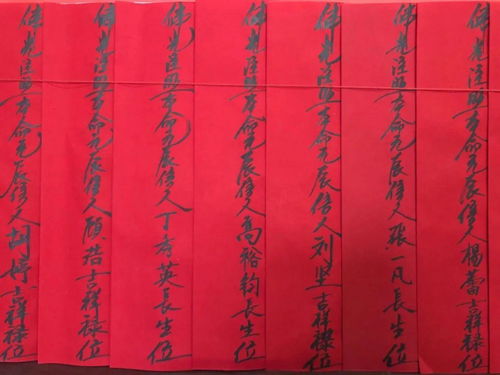 佛光注照本命元辰信人楊蕾吉祥禄位
佛光注照本命元辰信人張一凡長生位
佛光注照本命元辰信人刘坚吉祥禄位
佛光注照本命元辰信人高裕钧長生位
佛光注照本命元辰信人丁秀英長生位
佛光注照本命元辰信人顾浩吉祥禄位
佛光注照本命元辰信人胡婷吉祥禄位